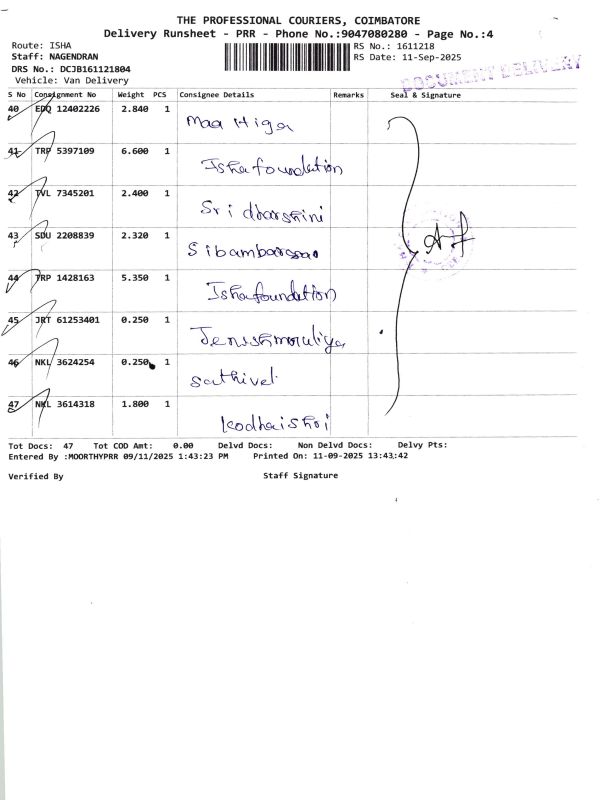 THE PROFESSIONAL COURIERS, COIMBATORE
Delivery Runsheet - PRR - Phone No.:9047080280 - Page No.:4
Route: ISHA
Staff: NAGENDRAN
DRS No.: DCJB161121804
Vehicle: Van Delivery
RS No.: 1611218
RS Date: 11-Sep-2025
DOCUMENT DELIVERY
S No Consignment No Weight PCS Consignee Details Remarks Seal & Signature
40 EDQ 12402226 2.840 1 Maa Higa
41 TRP 5397109 6.600 1 Isha foundation
42 TVL 7345201 2.400 1 Sri dharshini
43 SDU 2208839 2.320 1
44 TRP 1428163 5.350 1 Isha foundation
45 JRT 61253401 0.250 1
46 NKL 3624254 0.250 1 Sathivel
47 NKL 3614318 1.800 1
Tot Docs: 47 Tot COD Amt: 0.00 Delvd Docs: Non Delvd Docs: Delvy Pts:
Entered By :MOORTHYPRR 09/11/2025 1:43:23 PM Printed On: 11-09-2025 13:43:42
Verified By Staff Signature